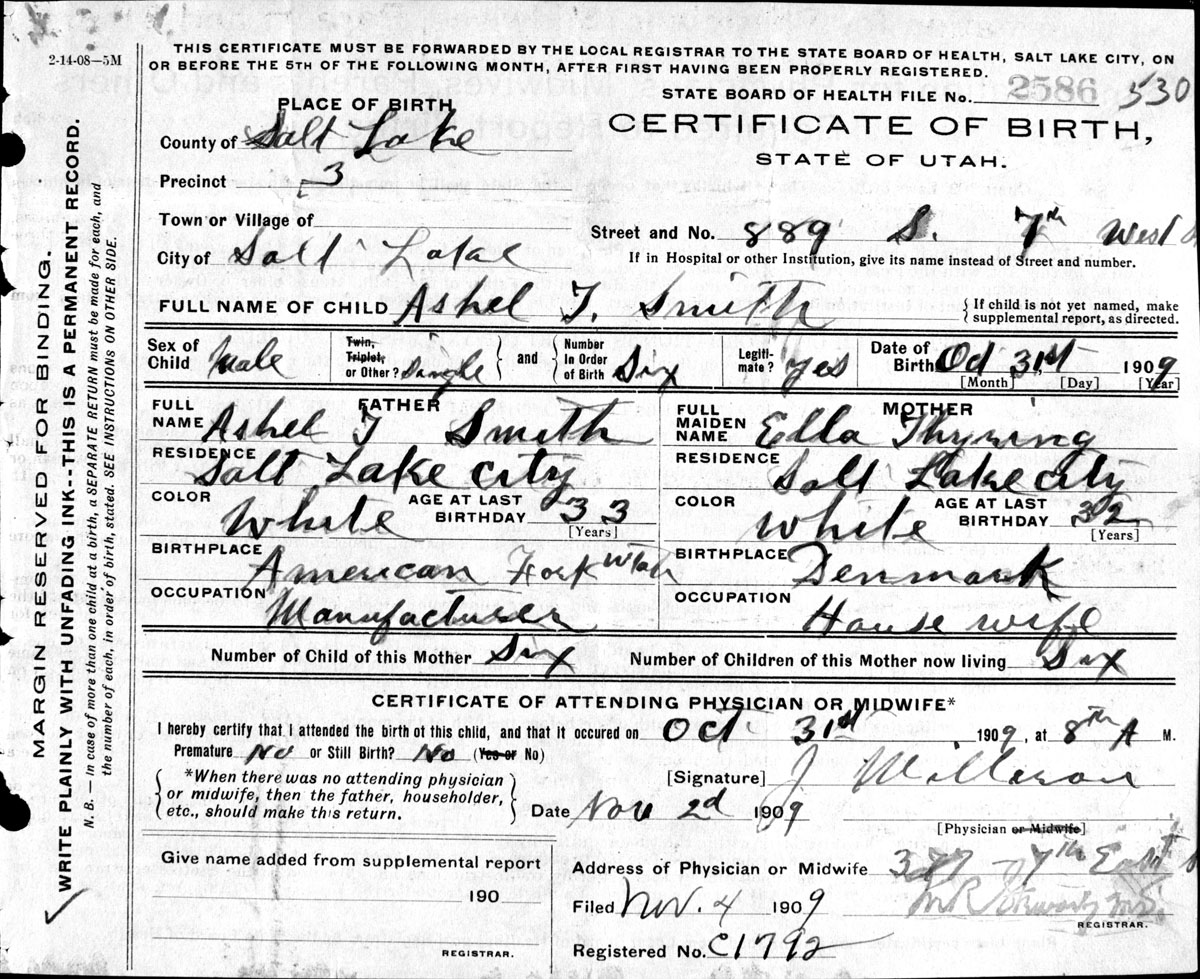 2-14-08—5M
THIS CERTIFICATE MUST BE FORWARDED BY THE LOCAL REGISTRAR TO THE STATE BOARD OF HEALTH, SALT LAKE CITY, ON
OR BEFORE THE 5TH OF THE FOLLOWING MONTH, AFTER FIRST HAVING BEEN PROPERLY REGISTERED.
STATE BOARD OF HEALTH FILE No. 2586 530
PLACE OF BIRTH
CERTIFICATE OF BIRTH,
STATE OF UTAH.
County of Salt Lake
Precinct 3
Town or Village of
City of Salt Lake
Street and No. 889 S. 7th West
If in Hospital or other Institution, give its name instead of Street and number.
FULL NAME OF CHILD Ashel T. Smith
{If child is not yet named, make
supplemental report, as directed.
Sex of Child Male
Twin, Triplet, or Other? Single
and Number In Order of Birth Six
Legiti-mate? Yes
Date of Birth Oct 31st 1909
[Month] [Day] [Year]
FATHER
FULL NAME Ashel T Smith
MOTHER
FULL MAIDEN NAME Ella
RESIDENCE Salt Lake city
RESIDENCE Salt Lake city
COLOR White
AGE AT LAST BIRTHDAY 33
[Years]
COLOR White
AGE AT LAST BIRTHDAY 32
[Years]
BIRTHPLACE American Fork Utah
BIRTHPLACE Denmark
OCCUPATION Manufacturer
OCCUPATION House wife
Number of Child of this Mother Six
Number of Children of this Mother now living Six
CERTIFICATE OF ATTENDING PHYSICIAN OR MIDWIFE*
I hereby certify that I attended the birth of this child, and that it occured on Oct 31st 1909, at 8th A M.
Premature No or Still Birth? No (Yes or No)
{*When there was no attending physician
or midwife, then the father, householder,
etc., should make this return.}
[Signature] J
Date Nov 2d 1909
[Physician or Midwife]
Give name added from supplemental report
190
REGISTRAR.
Address of Physician or Midwife 7th East
Filed Nov. 4 1909
REGISTRAR.
Registered No. C1792
MARGIN RESERVED FOR BINDING.
WRITE PLAINLY WITH UNFADING INK--THIS IS A PERMANENT RECORD.
N. B.—In case of more than one child at a birth, a SEPARATE RETURN must be made for each, and
the number of each, in order of birth, stated. SEE INSTRUCTIONS ON OTHER SIDE.